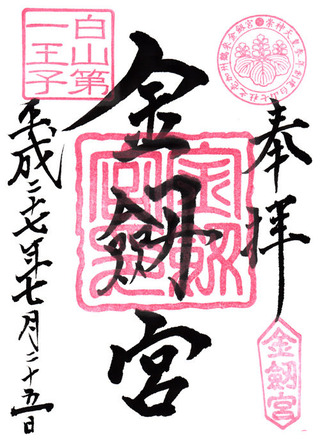 奉拝
金劔宮
金劔宮
白山第
一王子
平成二十七年七月二十五日